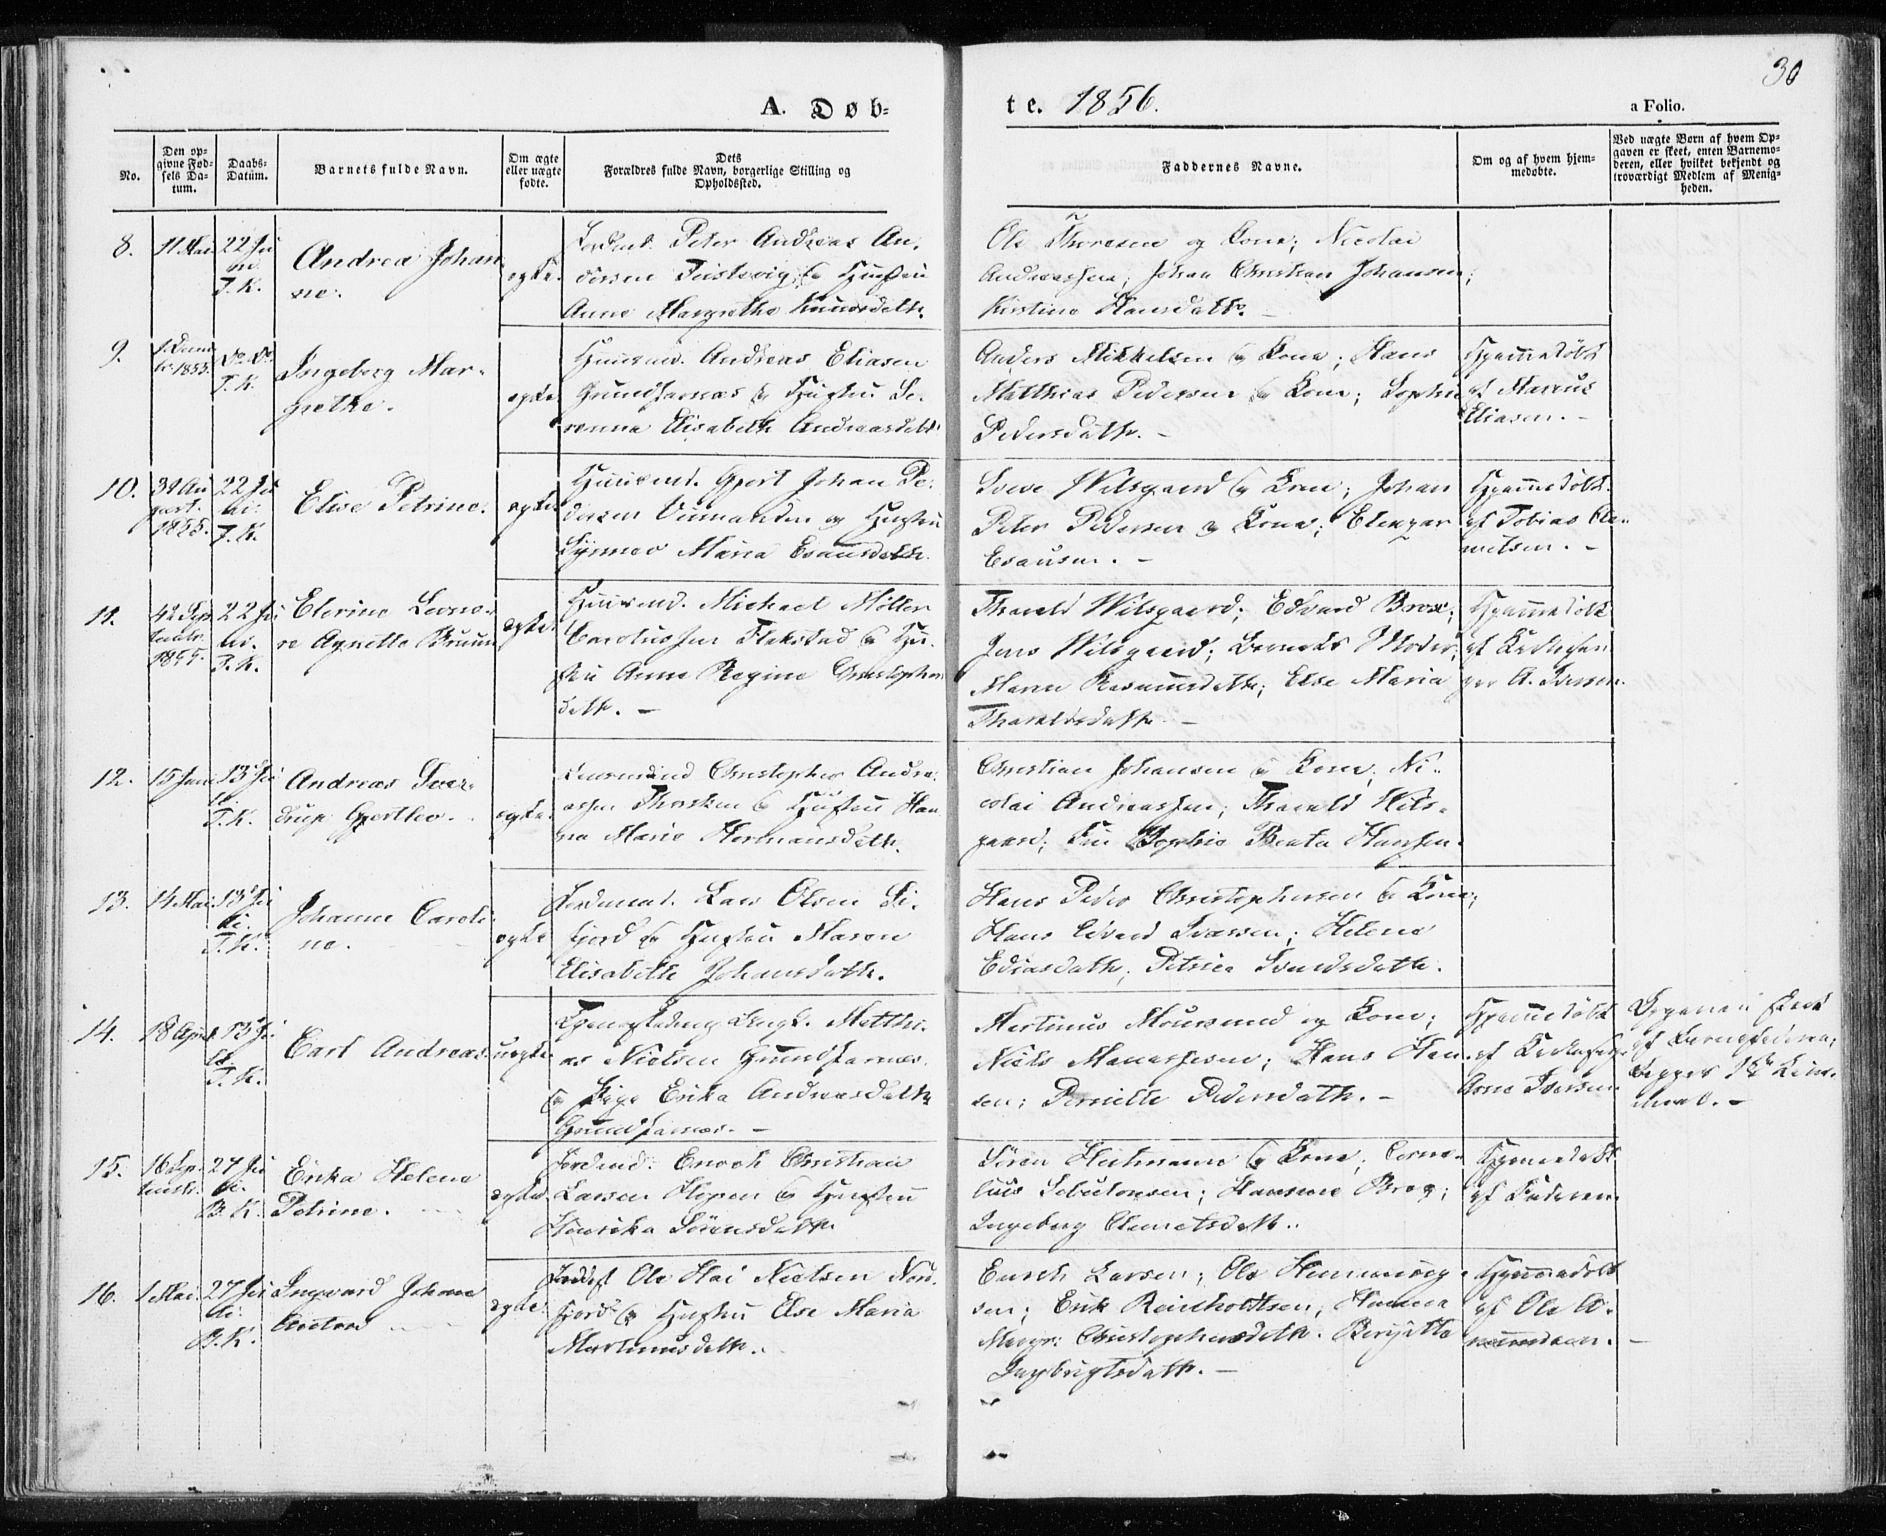 30
A. Døb-
te. 1856.
a Folio.
No.
Den op-
givne Fød-
sels Da-
tum.
Daabs-
Datum.
Barnets fulde Navn.
Om ægte
eller uægte
fødte.
Dets
Forældres fulde Navn, borgerlige Stilling og
Opholdssted.
Faddernes Navne.
Om og af hvem hjem-
medøbte.
Ved uægte Børn af hvem Op-
gaven er skeet, enten Barnemo-
deren, eller hvilket bekjendt og
troværdigt Medlem af Menig-
heden.
8.
11 Mai
22 Ju
ni.
T. K.
Andrea Johan
ne.
ægte.
Peter Andreas An,
dersen & Hustru
Anne Margrethe Knudsdatt.
Ole Thoresen og Kone; Nicolai
Andreassen; Johan Christian Johansen;
Kirstine Hansdatt. -
9.
1855.
Do. Do.
T. K.
Ingeborg Mar-
grethe.
ægte.
Huusmd. Andreas Eliasen
Grundfarnæs & Hustru Se-
renna Elisabeth Andreasdatt.
Anders Mikkelsen & Kone; Hans
Matthias Pedersen & Kone; Sophie
Pedersdatt. -
Hjemmedøbt
af Marcus
Eliasen. -
10.
31 Au
gust.
1855.
22 Ju
ni.
T. K.
Elise Petrine.
ægte.
Huusmd. Gjert Johan Pe-
dersen og Hustru
Synnev Maria Esausdatt.
Wilsgaard & Kone; Johan
Peter Pedersen & Kone; Eleazar
Esausen. -
Hjemmedøbt
af Tobias Cle-
metsen. -
11.
Sep
tembr.
1855.
22 Ju
ni.
T. K.
Elerine Leono-
re Agnette Bruun
ægte.
Huusmd. Michael Möller
Carolussen Flakstad & Hu-
stru Anne Regine Christopher
datt. -
Tharald Wilsgaard; Edvard Brox;
Jens Wilsgaard; Barnets Moder;
Maren Rasmusdatt; Else Maria
Tharaldsdatt. -
Hjemmedøbt
af Kirkesan
ger A. Iversen.
12.
15 Juni
13 Ju
li
T. K.
Andreas Sver-
drup Gjertlev.
ægte.
Huusmand Christopher Andre-
assen Thorsken & Hustru Han
na Marie Hermansdatt.
Christian Johansen & Kone; Ni-
colai Andreassen; Tharald Wils-
gaard; Sophie Beata Hansen.
13.
14 Mai
13 Ju
li.
T. K.
Johanne Caroli
ne.
ægte
Lars Olsen Si-
fjord & Hustru Maren
Elisabeth Johansdatt.
Hans Peder Christophersen & Kone;
Hans Edvard Iversen; Helene
Ediasdatt; Petrica Svendsdatt.
14.
18 April
13 Ju
li
T. K.
Carl Andreas
uægte
Matthi-
as Nielsen Grundfarnæs
& Pige Erika Andreasdatt
Grundfarnæs. -
Martinus Moursund og Kone;
Niels Manassesen; Hans Han
sen; Pernille Pedersdatt. -
Hjemmedøbt
af Kirkesanger
Arne Iversen
Opgaven skeet
af Barnefaderen;
begges 1ste Leier-
maal. -
15.
16 Sep
tembr.
27 Ju
li.
B. K.
Erika Helene
Petrine.
ægte
Jordmd. Enoch Christian
Larsen & Hustru
Henrika Sörensdatt.
Sören Heitmann & Kone; Corne-
lius Sebulonsen; Hansine Brox;
Ingeborg Clemetsdatt.
Hjemmedøbt
af Faderen
16.
1 Mai
27 Ju
li.
B. K.
Ingvard Johan
ægte.
Ole Hai Nielsen Nord-
fjord & Hustru Else Maria
Martinusdatt.
Enoch Larsen; Ole Hemming
sen; Erik Reinholdtsen; Hanna
Margr: Christophersdatt. Berjitte
Ingbrigtsdatt. -
Hjemmedøbt
af Ole A-
mundsen. -